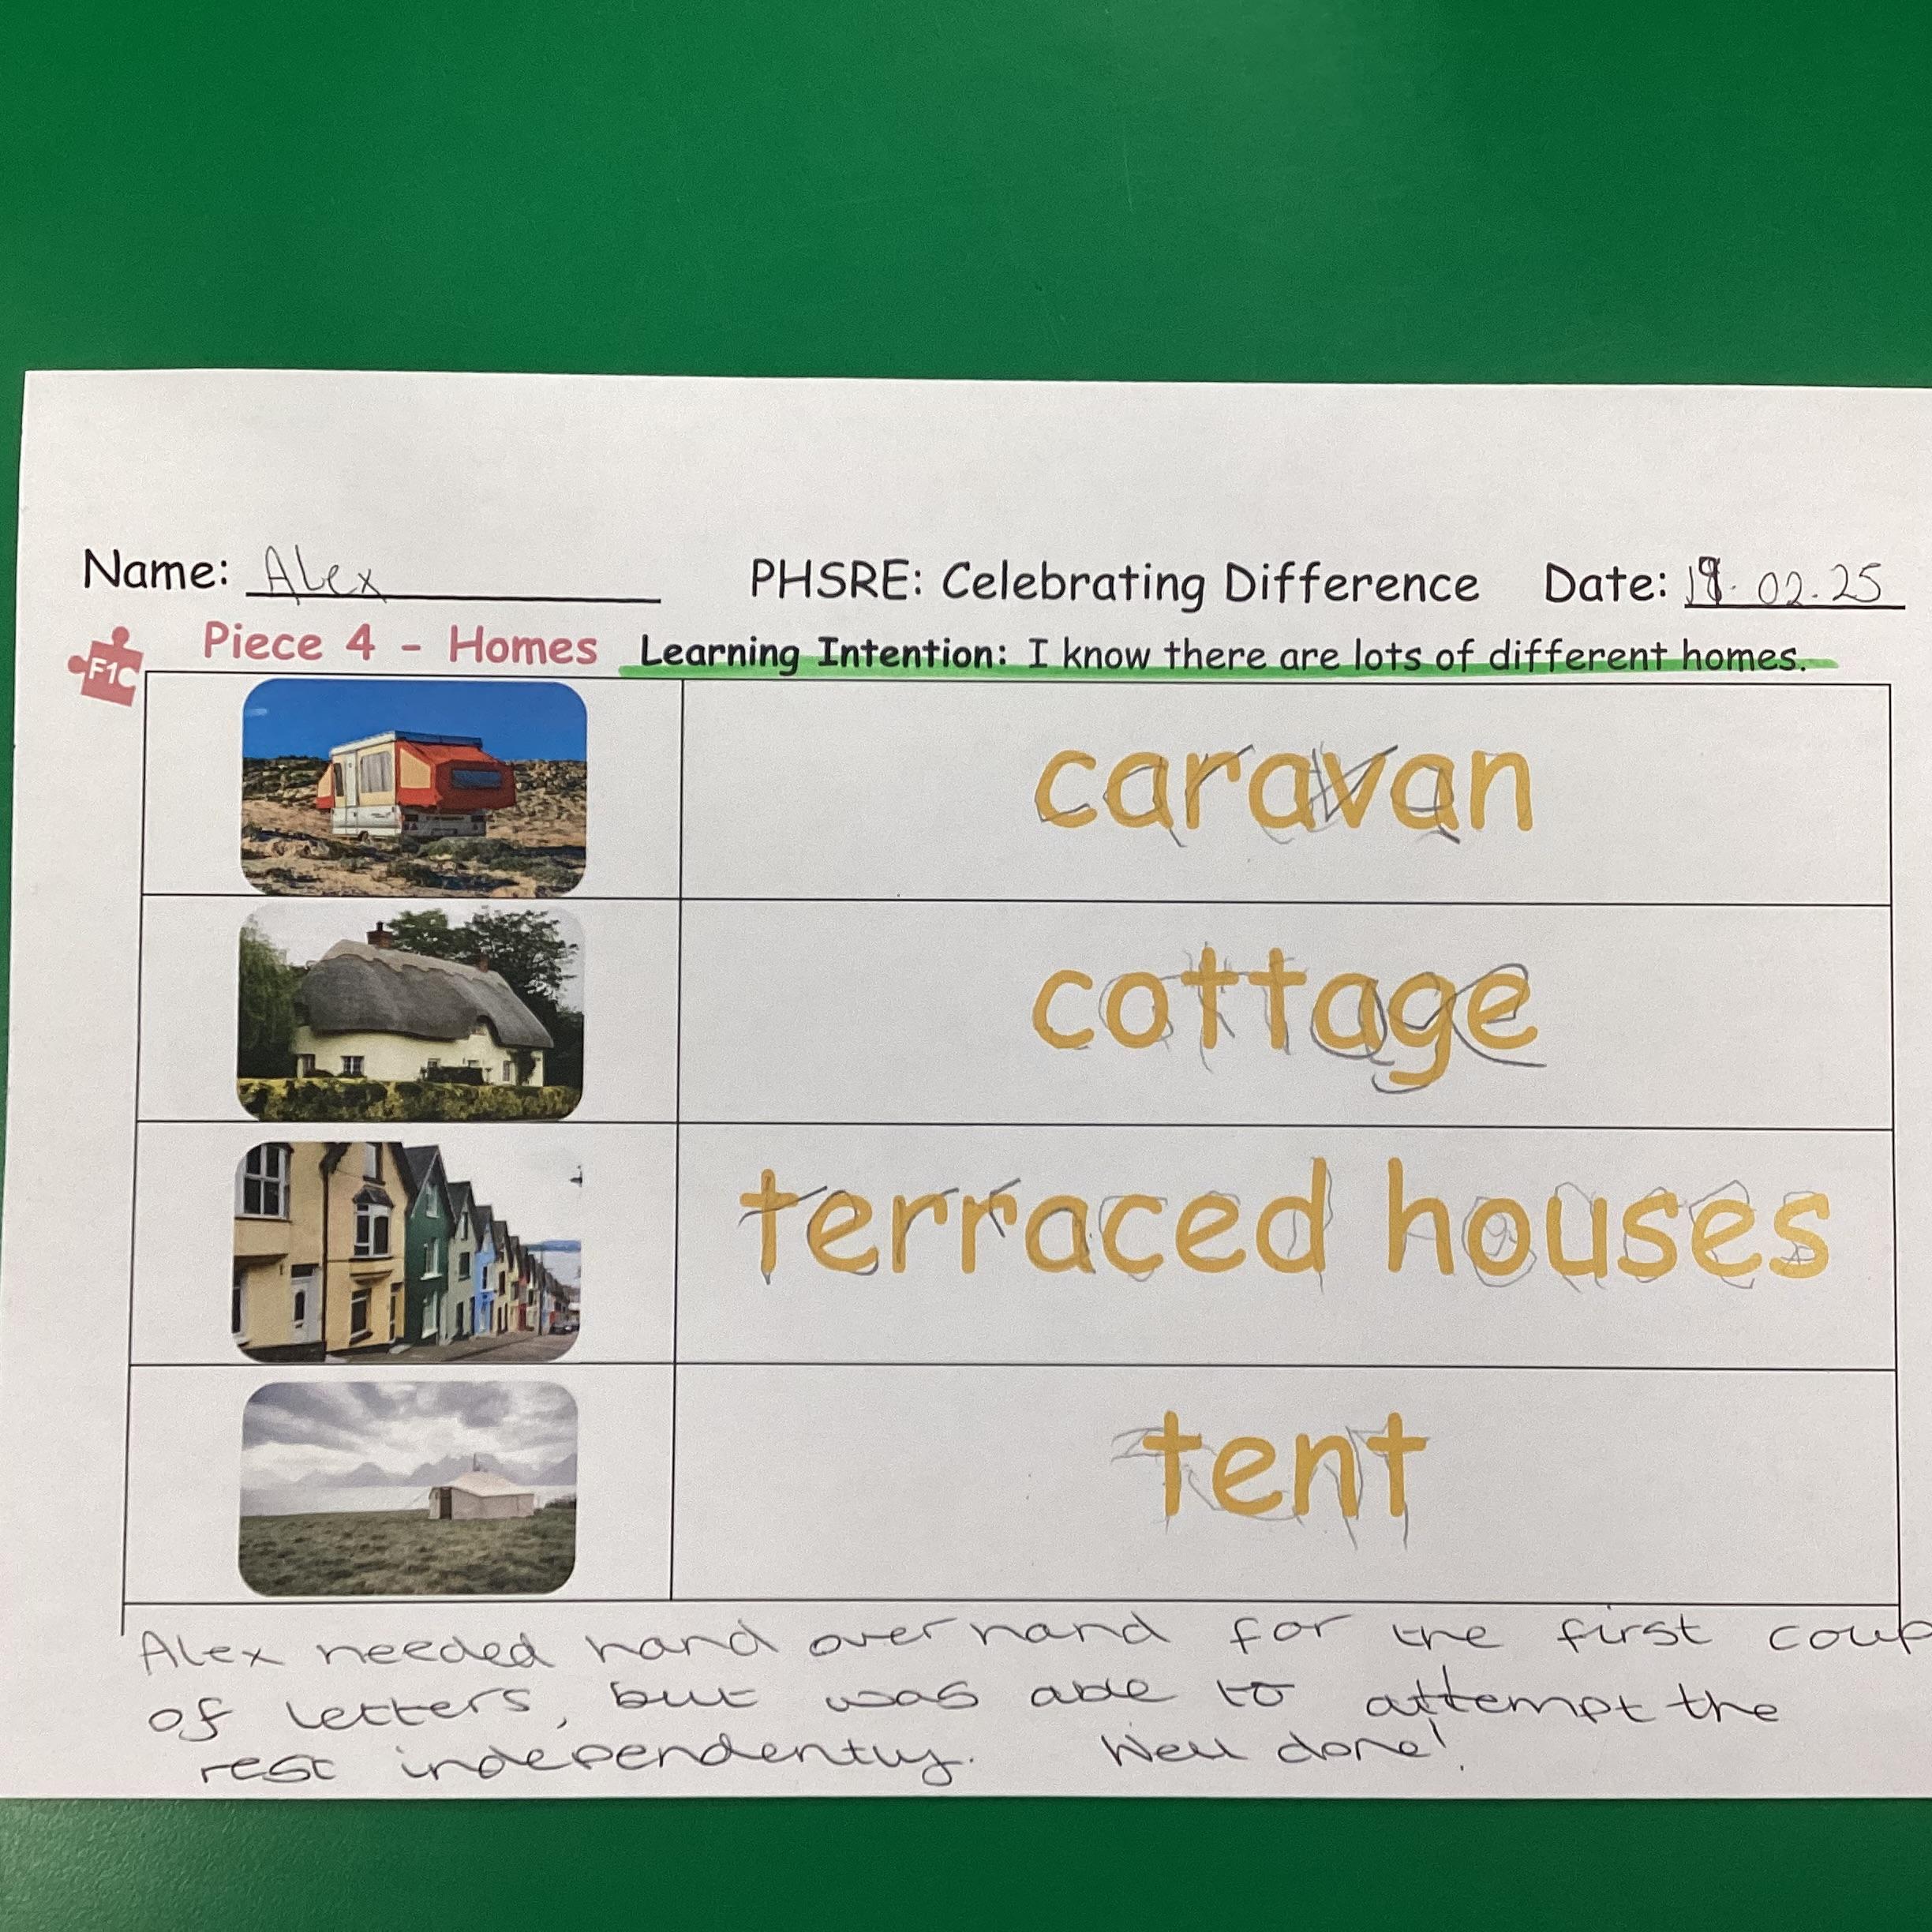 Name: Alex PHSRE: Celebrating Difference Date: 02.25
F1C Piece 4 - Homes Learning Intention: I know there are lots of different homes.
caravan
cottage
terraced houses
tent
Alex needed hand over hand for the first coup
of letters, but was able to attempt the
rest independently. Well done!